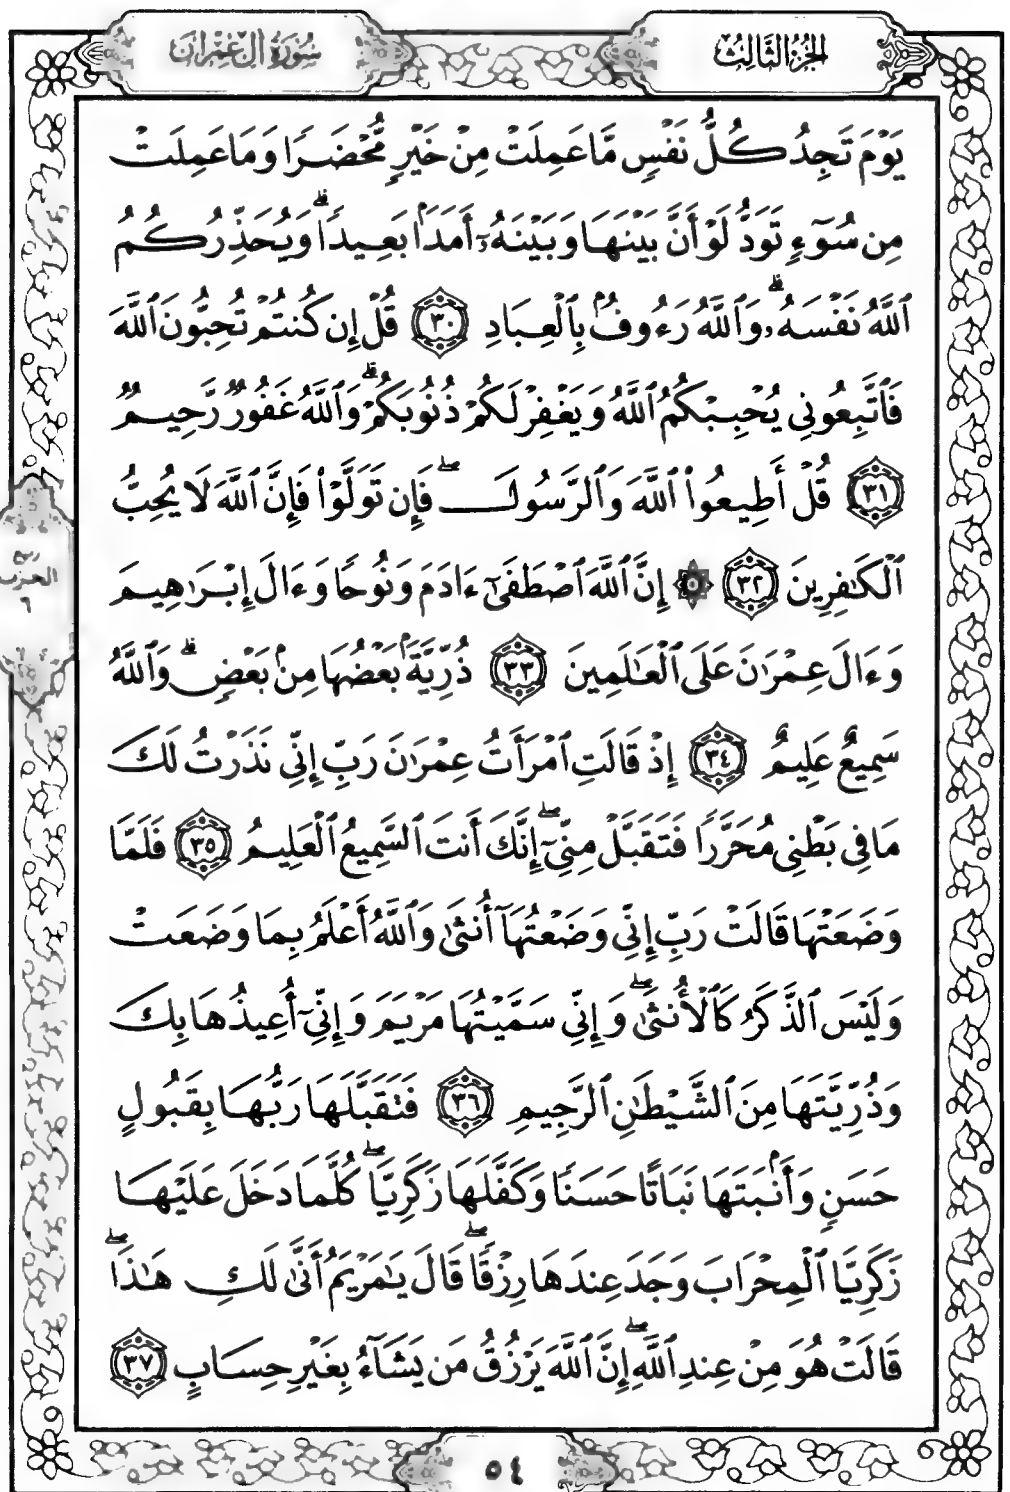 الجزء الثالث
سورة آل عمران
يَوْمَ تَجِدُ كُلُّ نَفْسٍ مَّا عَمِلَتْ مِنْ خَيْرٍ مُّحْضَرًا وَمَا عَمِلَتْ
مِن سُوٓءٍ تَوَدُّ لَوْ أَنَّ بَيْنَهَا وَبَيْنَهُۥٓ أَمَدَۢا بَعِيدًاۗ وَيُحَذِّرُكُمُ
ٱللَّهُ نَفْسَهُۥۗ وَٱللَّهُ رَءُوفُۢ بِٱلْعِبَادِ ٣٠ قُلْ إِن كُنتُمْ تُحِبُّونَ ٱللَّهَ
فَٱتَّبِعُونِى يُحْبِبْكُمُ ٱللَّهُ وَيَغْفِرْ لَكُمْ ذُنُوبَكُمْۗ وَٱللَّهُ غَفُورٌ رَّحِيمٌ
٣١ قُلْ أَطِيعُوا۟ ٱللَّهَ وَٱلرَّسُولَۖ فَإِن تَوَلَّوْا۟ فَإِنَّ ٱللَّهَ لَا يُحِبُّ
ٱلْكَٰفِرِينَ ٣٢ ۞ إِنَّ ٱللَّهَ ٱصْطَفَىٰٓ ءَادَمَ وَنُوحًا وَءَالَ إِبْرَٰهِيمَ
وَءَالَ عِمْرَٰنَ عَلَى ٱلْعَٰلَمِينَ ٣٣ ذُرِّيَّةَۢ بَعْضُهَا مِنۢ بَعْضٍۗ وَٱللَّهُ
سَمِيعٌ عَلِيمٌ ٣٤ إِذْ قَالَتِ ٱمْرَأَتُ عِمْرَٰنَ رَبِّ إِنِّى نَذَرْتُ لَكَ
مَا فِى بَطْنِى مُحَرَّرًا فَتَقَبَّلْ مِنِّىٓۖ إِنَّكَ أَنتَ ٱلسَّمِيعُ ٱلْعَلِيمُ ٣٥ فَلَمَّا
وَضَعَتْهَا قَالَتْ رَبِّ إِنِّى وَضَعْتُهَآ أُنثَىٰ وَٱللَّهُ أَعْلَمُ بِمَا وَضَعَتْ
وَلَيْسَ ٱلذَّكَرُ كَٱلْأُنثَىٰۖ وَإِنِّى سَمَّيْتُهَا مَرْيَمَ وَإِنِّىٓ أُعِيذُهَا بِكَ
وَذُرِّيَّتَهَا مِنَ ٱلشَّيْطَٰنِ ٱلرَّجِيمِ ٣٦ فَتَقَبَّلَهَا رَبُّهَا بِقَبُولٍ
حَسَنٍ وَأَنۢبَتَهَا نَبَاتًا حَسَنًا وَكَفَّلَهَا زَكَرِيَّاۖ كُلَّمَا دَخَلَ عَلَيْهَا
زَكَرِيَّا ٱلْمِحْرَابَ وَجَدَ عِندَهَا رِزْقًاۖ قَالَ يَٰمَرْيَمُ أَنَّىٰ لَكِ هَٰذَاۖ
قَالَتْ هُوَ مِنْ عِندِ ٱللَّهِۖ إِنَّ ٱللَّهَ يَرْزُقُ مَن يَشَآءُ بِغَيْرِ حِسَابٍ ٣٧
ربع
الحزب
٦
٥٤